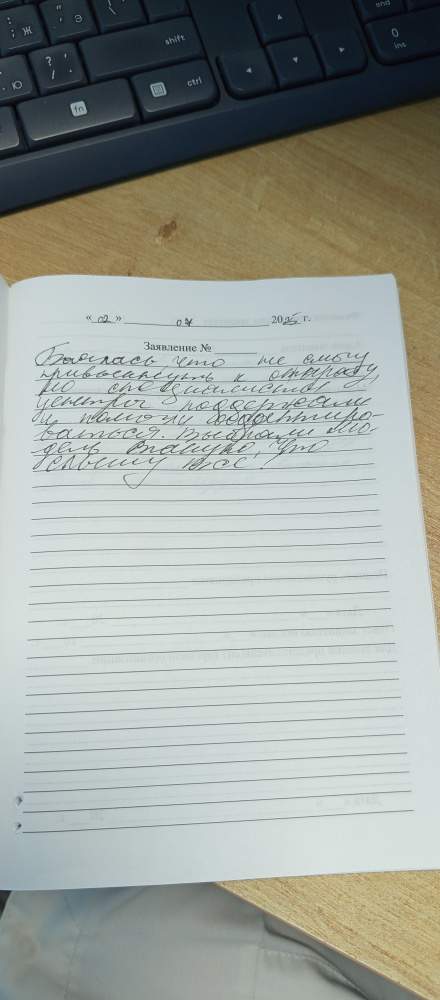 ж
э
ю
?
shift
fn
ctrl
end
0
ins
« 02 » 07 2025 г.
Заявление №
Боялась что не смогу
привыкнуть к аппарату
но специалисты
центра поддержали
и помогли адаптиро-
ваться. Выбрали мо-
дель такую, что
слышу все!